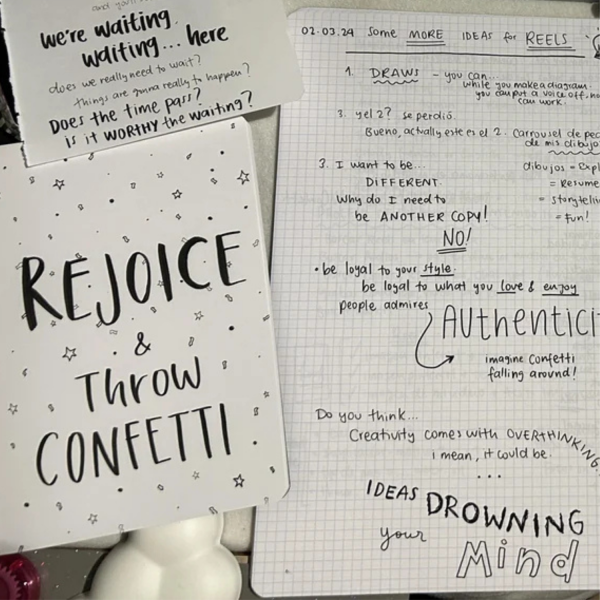 we're waiting.
waiting... here
does we really need to wait?
things are gonna really to happen?
Does the time pass?
is it WORTHY the waiting?
REJOICE
&
Throw
CONFETTI
02.03.24 Some MORE IDEAS for REELS
1. DRAWS - you can...
while you make a diagram,
you can put a voice off, h
can work.
3. yel 2? se perdió.
Bueno, actually este es el 2. Carrousel de pe
de mis dibujo
3. I want to be...
DIFFERENT.
Why do I need to
be ANOTHER COPY!
NO!
dibujos = Expl
= Resume
= Storytelli
= Fun!
• be loyal to your style.
be loyal to what you love & enjoy
people admires
AUthentici
imagine confetti
falling around!
Do you think...
Creativity comes with OVERTHINKING.
i mean, it could be.
...
IDEAS DROWNING
your Mind